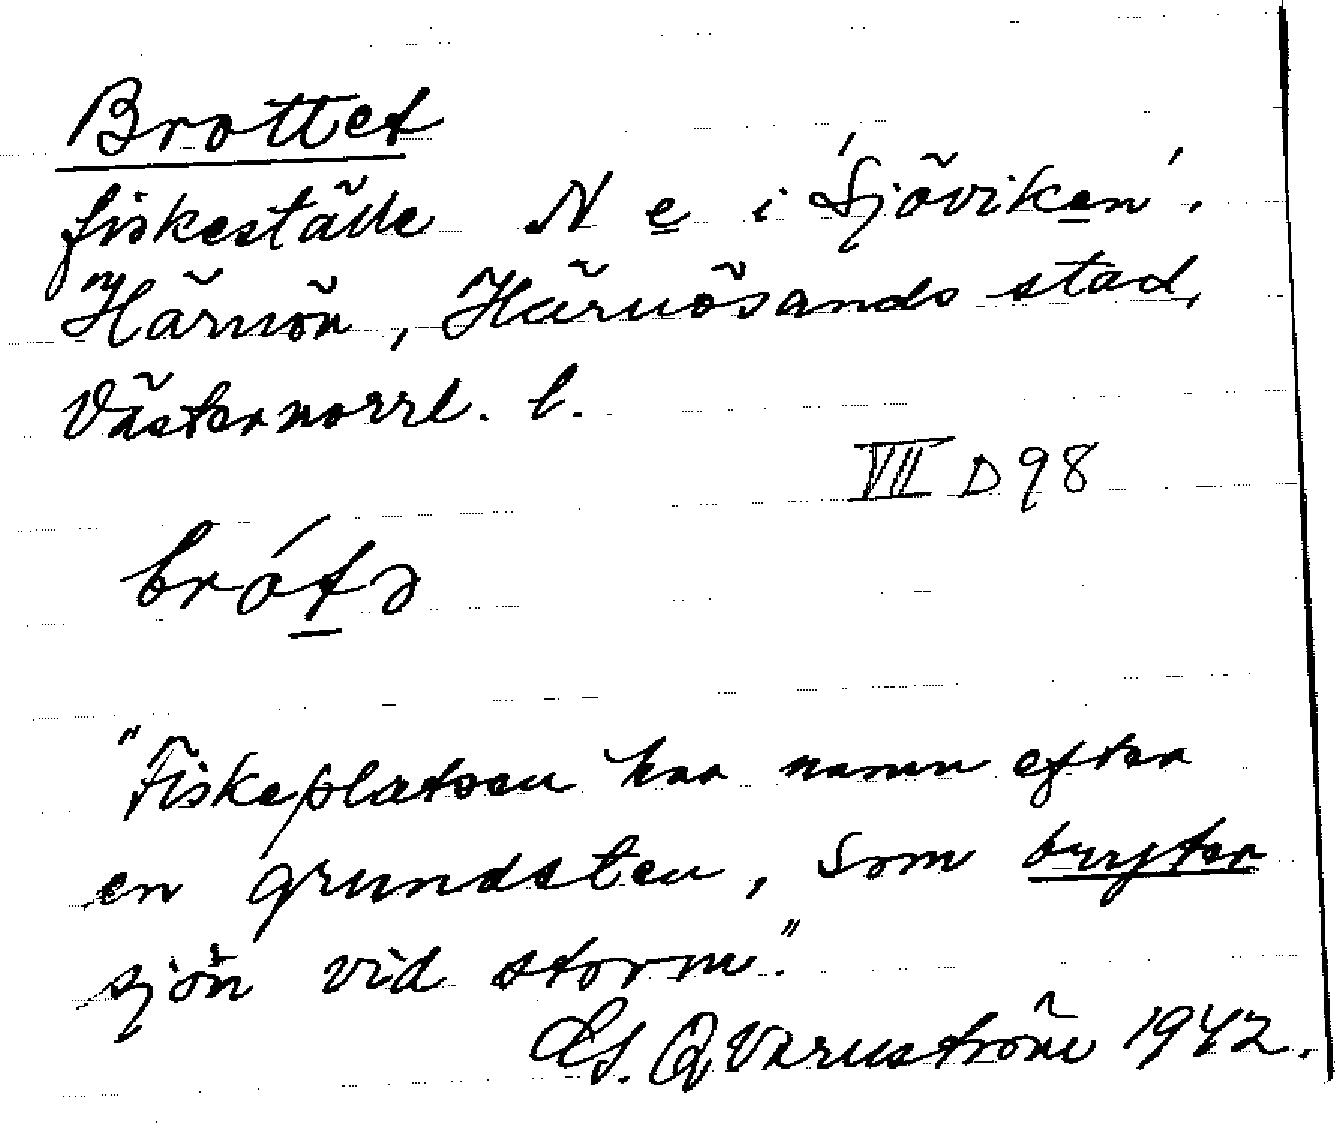 Brottet
fiskeställe N e i 'Sjöviken'.
Härnön, Härnösands stad,
Västernorrl. l.
VII D 98
brótə
"Fiskeplatsen har namn efter
en grundsten, som bryter
sjön vid storm."
GS. Qvarnström 1942.